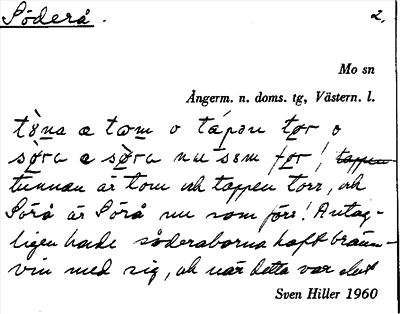 Söderå. 2.
Mo sn
Ångerm. n. doms. tg, Västern. l.
tɷ̀na æ tom o tápən tør o
sø̀ra e sø̀ra nu sem før!
tunnan är tom och tappen torr, och
Sörå är Sörå nu som förr! Antag-
ligen hade söderåborna haft bränn-
vin med sig, och när detta var slut
Sven Hiller 1960